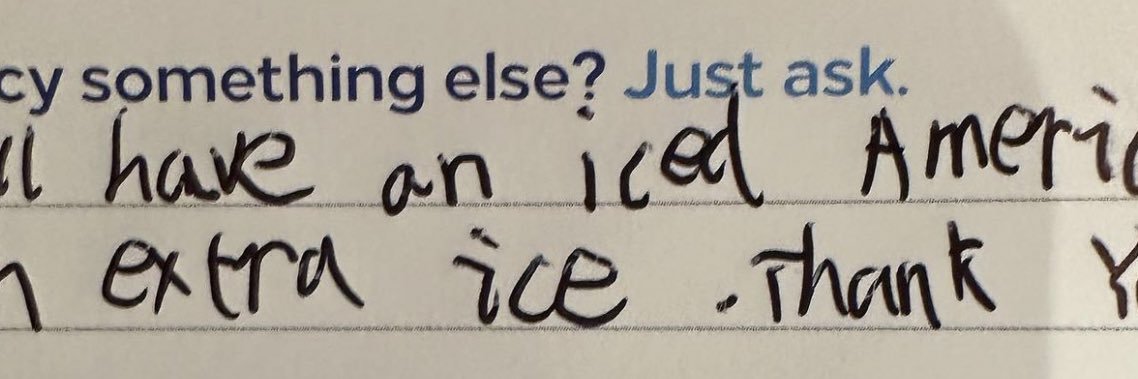 cy something else? Just ask.
ll have an iced Ameri
extra ice . Thank